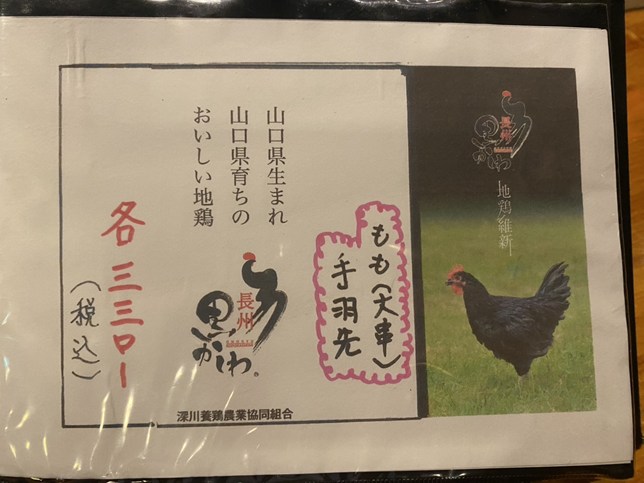 長州
黒かしわ
地鶏維新
もも(大串)
手羽先
山口県生まれ
山口県育ちの
おいしい地鶏
長州
黒かしわ
各三三〇ー
(税込)
深川養鶏農業協同組合